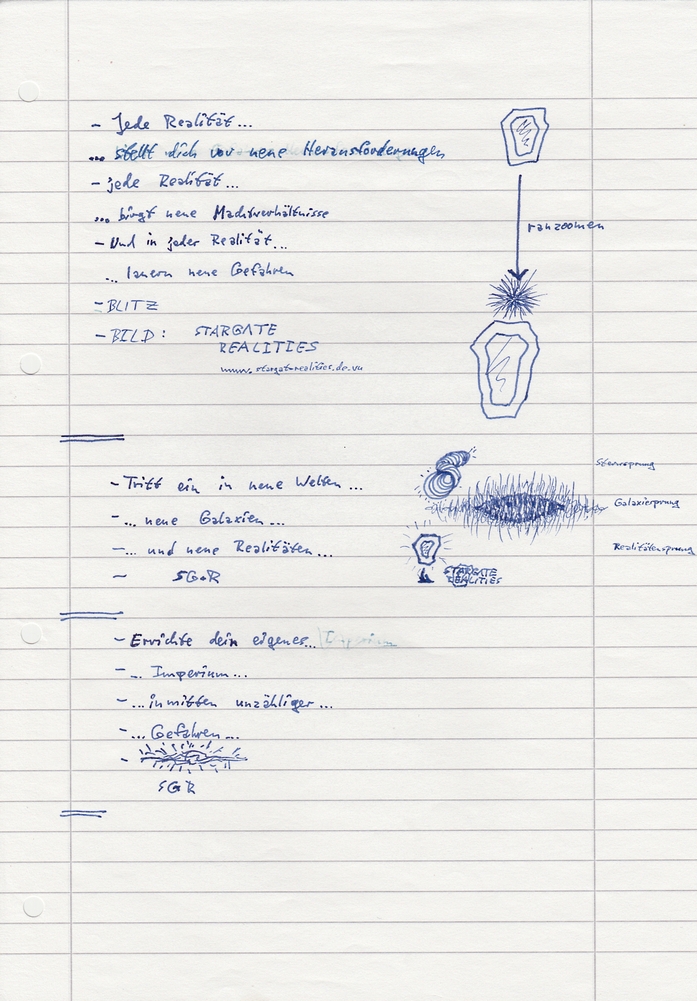 - Jede Realität...
... stellt dich vor neue Herausforderungen
- jede Realität...
ranzoomen
... birgt neue Machtverhältnisse
- Und in jeder Realität...
... lauern neue Gefahren
- BLITZ
- BILD: STARGATE
REALITIES
www.stargaterealities.de.vu
Sternsprung
- Tritt ein in neue Welten ...
Galaxiesprung
- ... neue Galaxien ...
- ... und neue Realitäten ...
Realitätensprung
- SGR
STARGATE
REALITIES
- Errichte dein eigenes... Imperium
- ... Imperium...
- ... inmitten unzähliger ...
- ... Gefahren ...
-
SGR